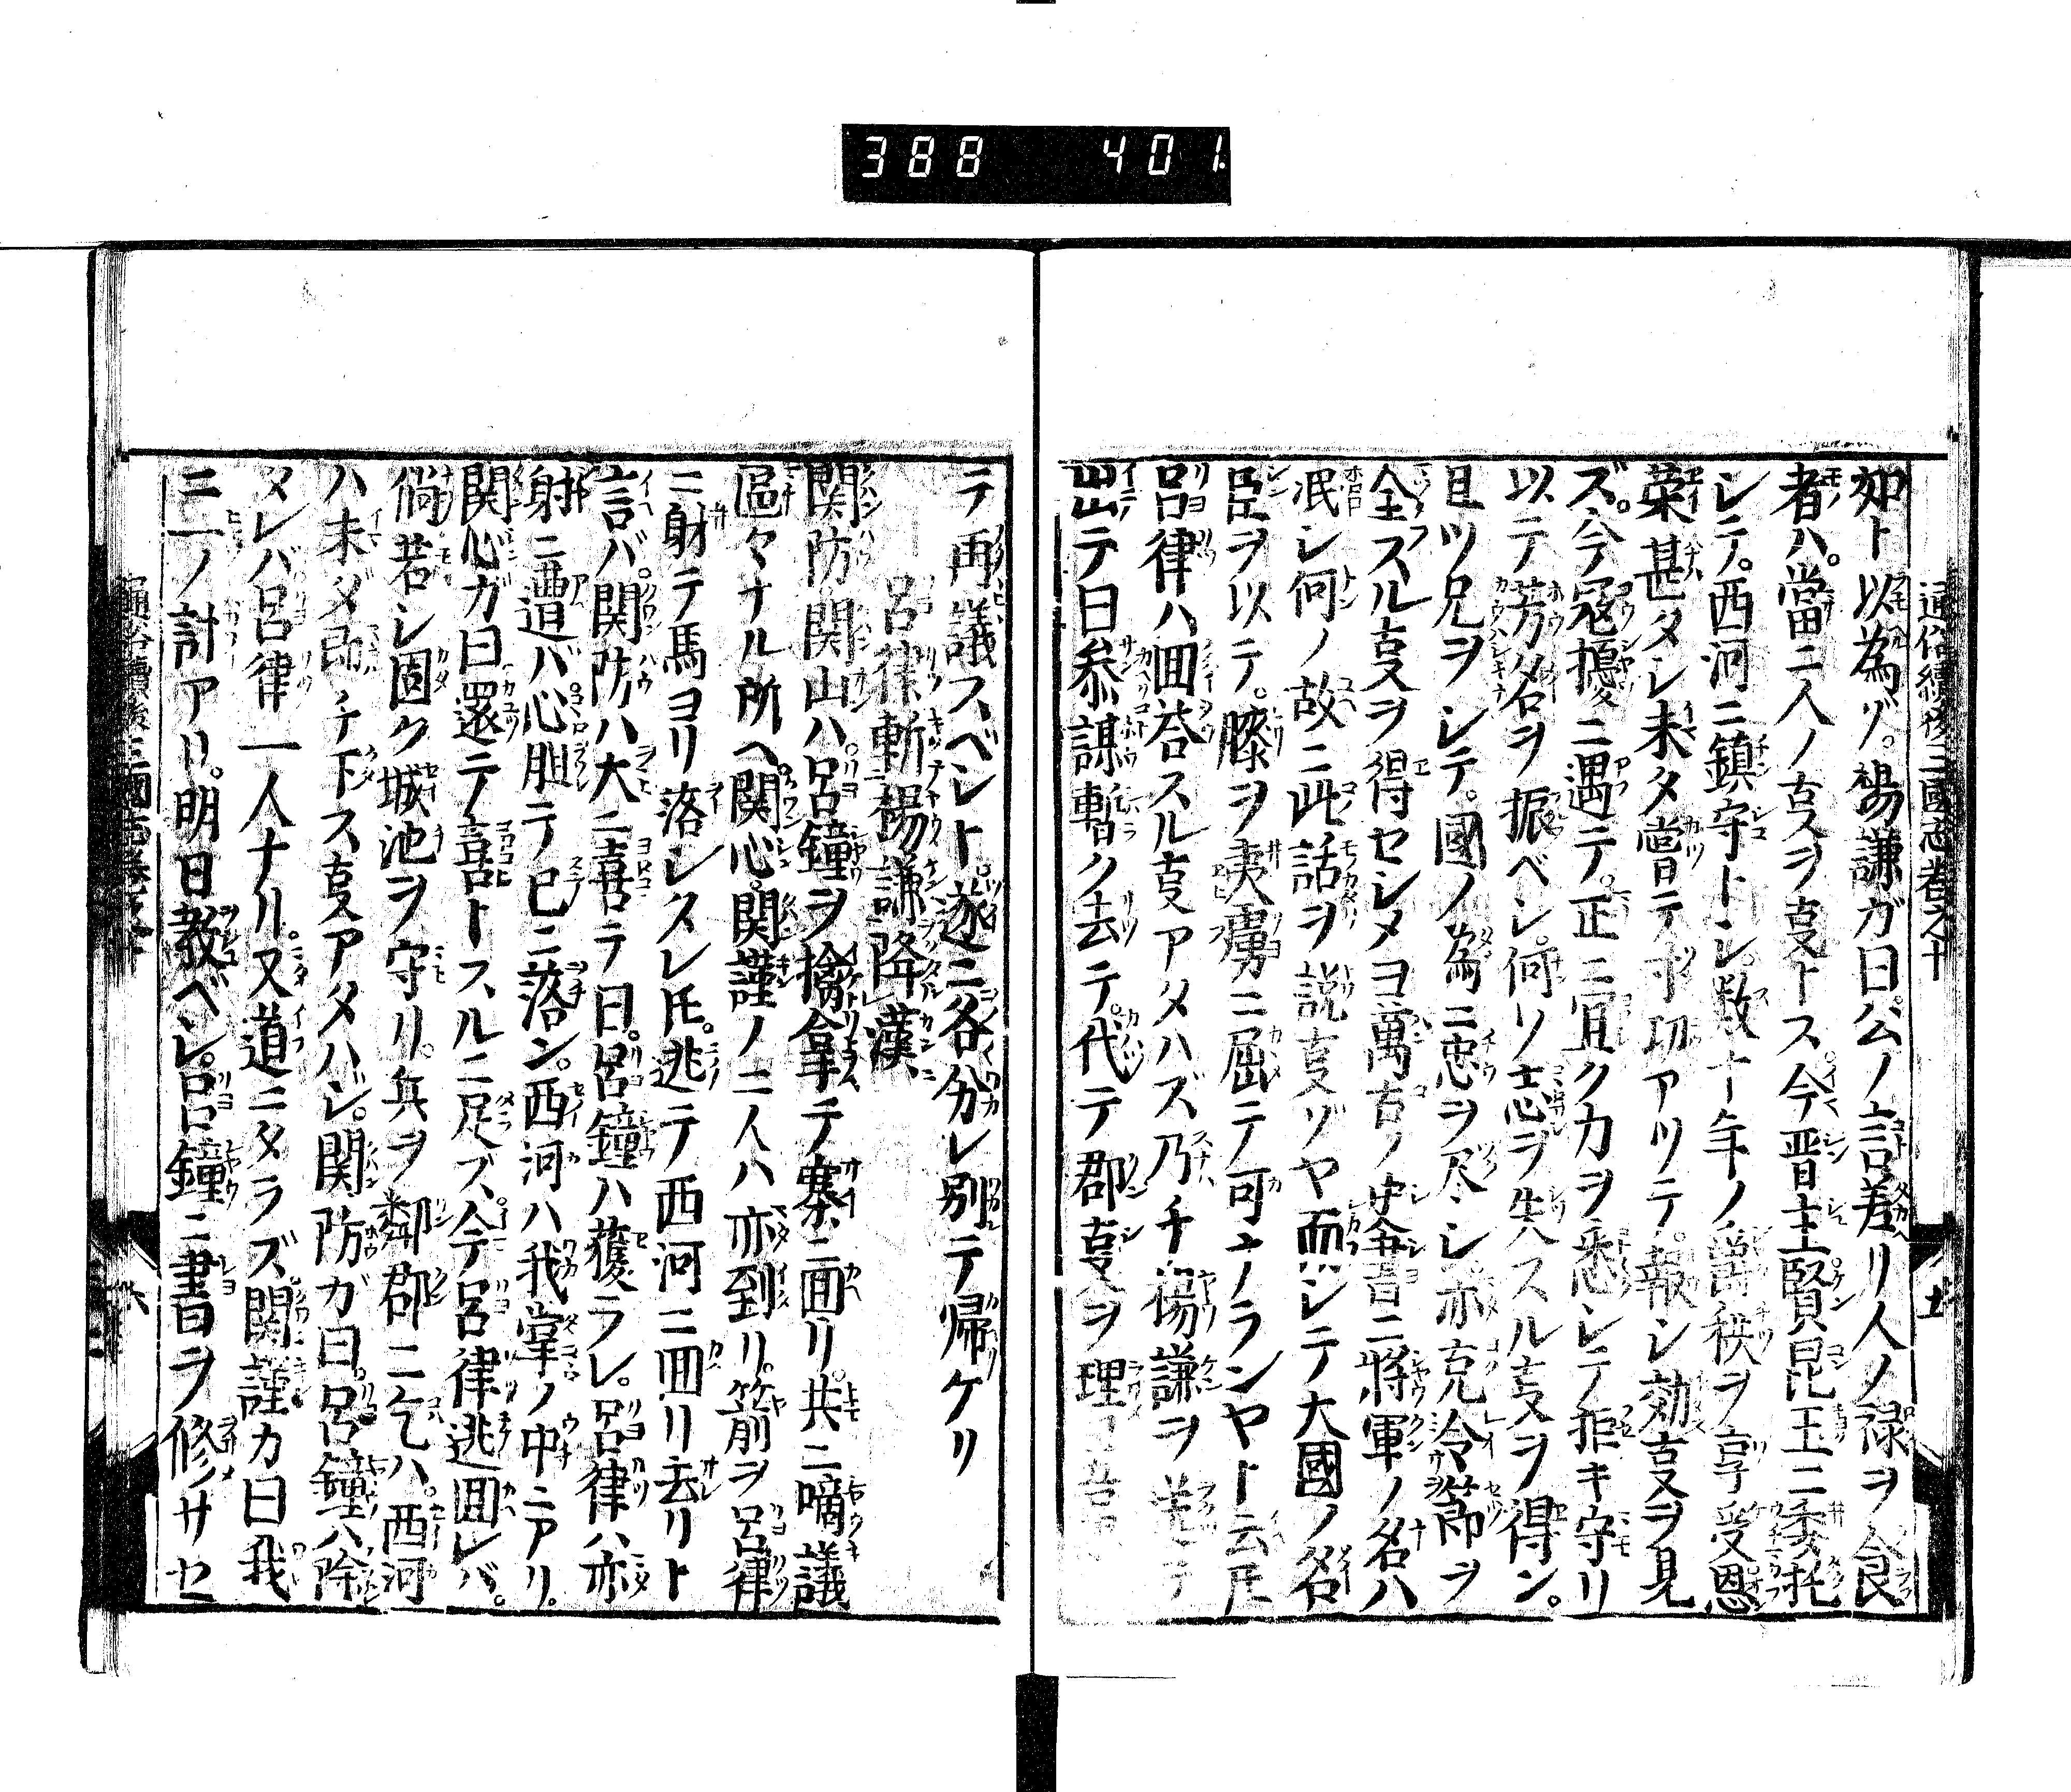 388 401
通俗續後三國志卷之十
如ト以為ゾ。楊謙ガ曰公ノ言差リ人ノ禄ヲ食
者ハ。當ニ人ノ叓ヲ叓トス今晋主賢昆玉ニ委托
シテ。西河ニ鎮守トシ。数十年ノ爵秩ヲ享受恩
榮甚タシ未タ嘗テ寸功アツテ。報シ効叓ヲ見
ズ。今冦擾ニ遇テ。正ニ宜ク力ヲ悉シテ拒キ守リ
以テ芳名ヲ振ベシ。何ソ志ヲ失スル叓ヲ得ン。
且ツ兄ヲシテ。國ノ為ニ忠ヲ尽シ亦克令節ヲ
全スル叓ヲ得セシメヨ萬古ノ史書ニ將軍ノ名ハ
泯シ何ノ故ニ此話ヲ説叓ゾヤ而シテ大國ノ名
臣ヲ以テ。膝ヲ夷虜ニ屈テ可ナランヤト云圧
呂律ハ回荅スル叓アタハズ乃チ楊謙ヲ送テ
出テ曰叅謀暫ク去テ。代テ郡叓ヲ理
テ再議スベシト。遂ニ各分レ別テ帰ケリ
呂律斬楊謙降漢
関防関山ハ呂鐘ヲ擒拿テ寨ニ回リ。共ニ嘀議
區々ナル所ヘ。関心。関謹ノ二人ハ亦到リ。箭ヲ呂律
ニ射テ馬ヨリ落シスレ圧。逃テ西河ニ回リ去リト
言バ。関防ハ大ニ喜テ曰。呂鐘ハ獲ラレ。呂律ハ亦
射ニ遭バ心胆テ已ニ落ン。西河ハ我掌ノ中ニアリ。
関心ガ曰還テノ喜トスルニ足ズ。今テ呂律逃回レバ。
倘若シ固ク城池ヲ守リ。兵ヲ鄰郡ニ乞ハ。西河
ハ未ダ即チ下ス叓アタハジ。関防ガ曰。呂鐘ハ除
タレバ呂律一人ナリ。又道ニタラズ。関謹カ曰我
ニ一ノ計アリ。明日教ベシ。呂鐘ニ書ヲ修サセ